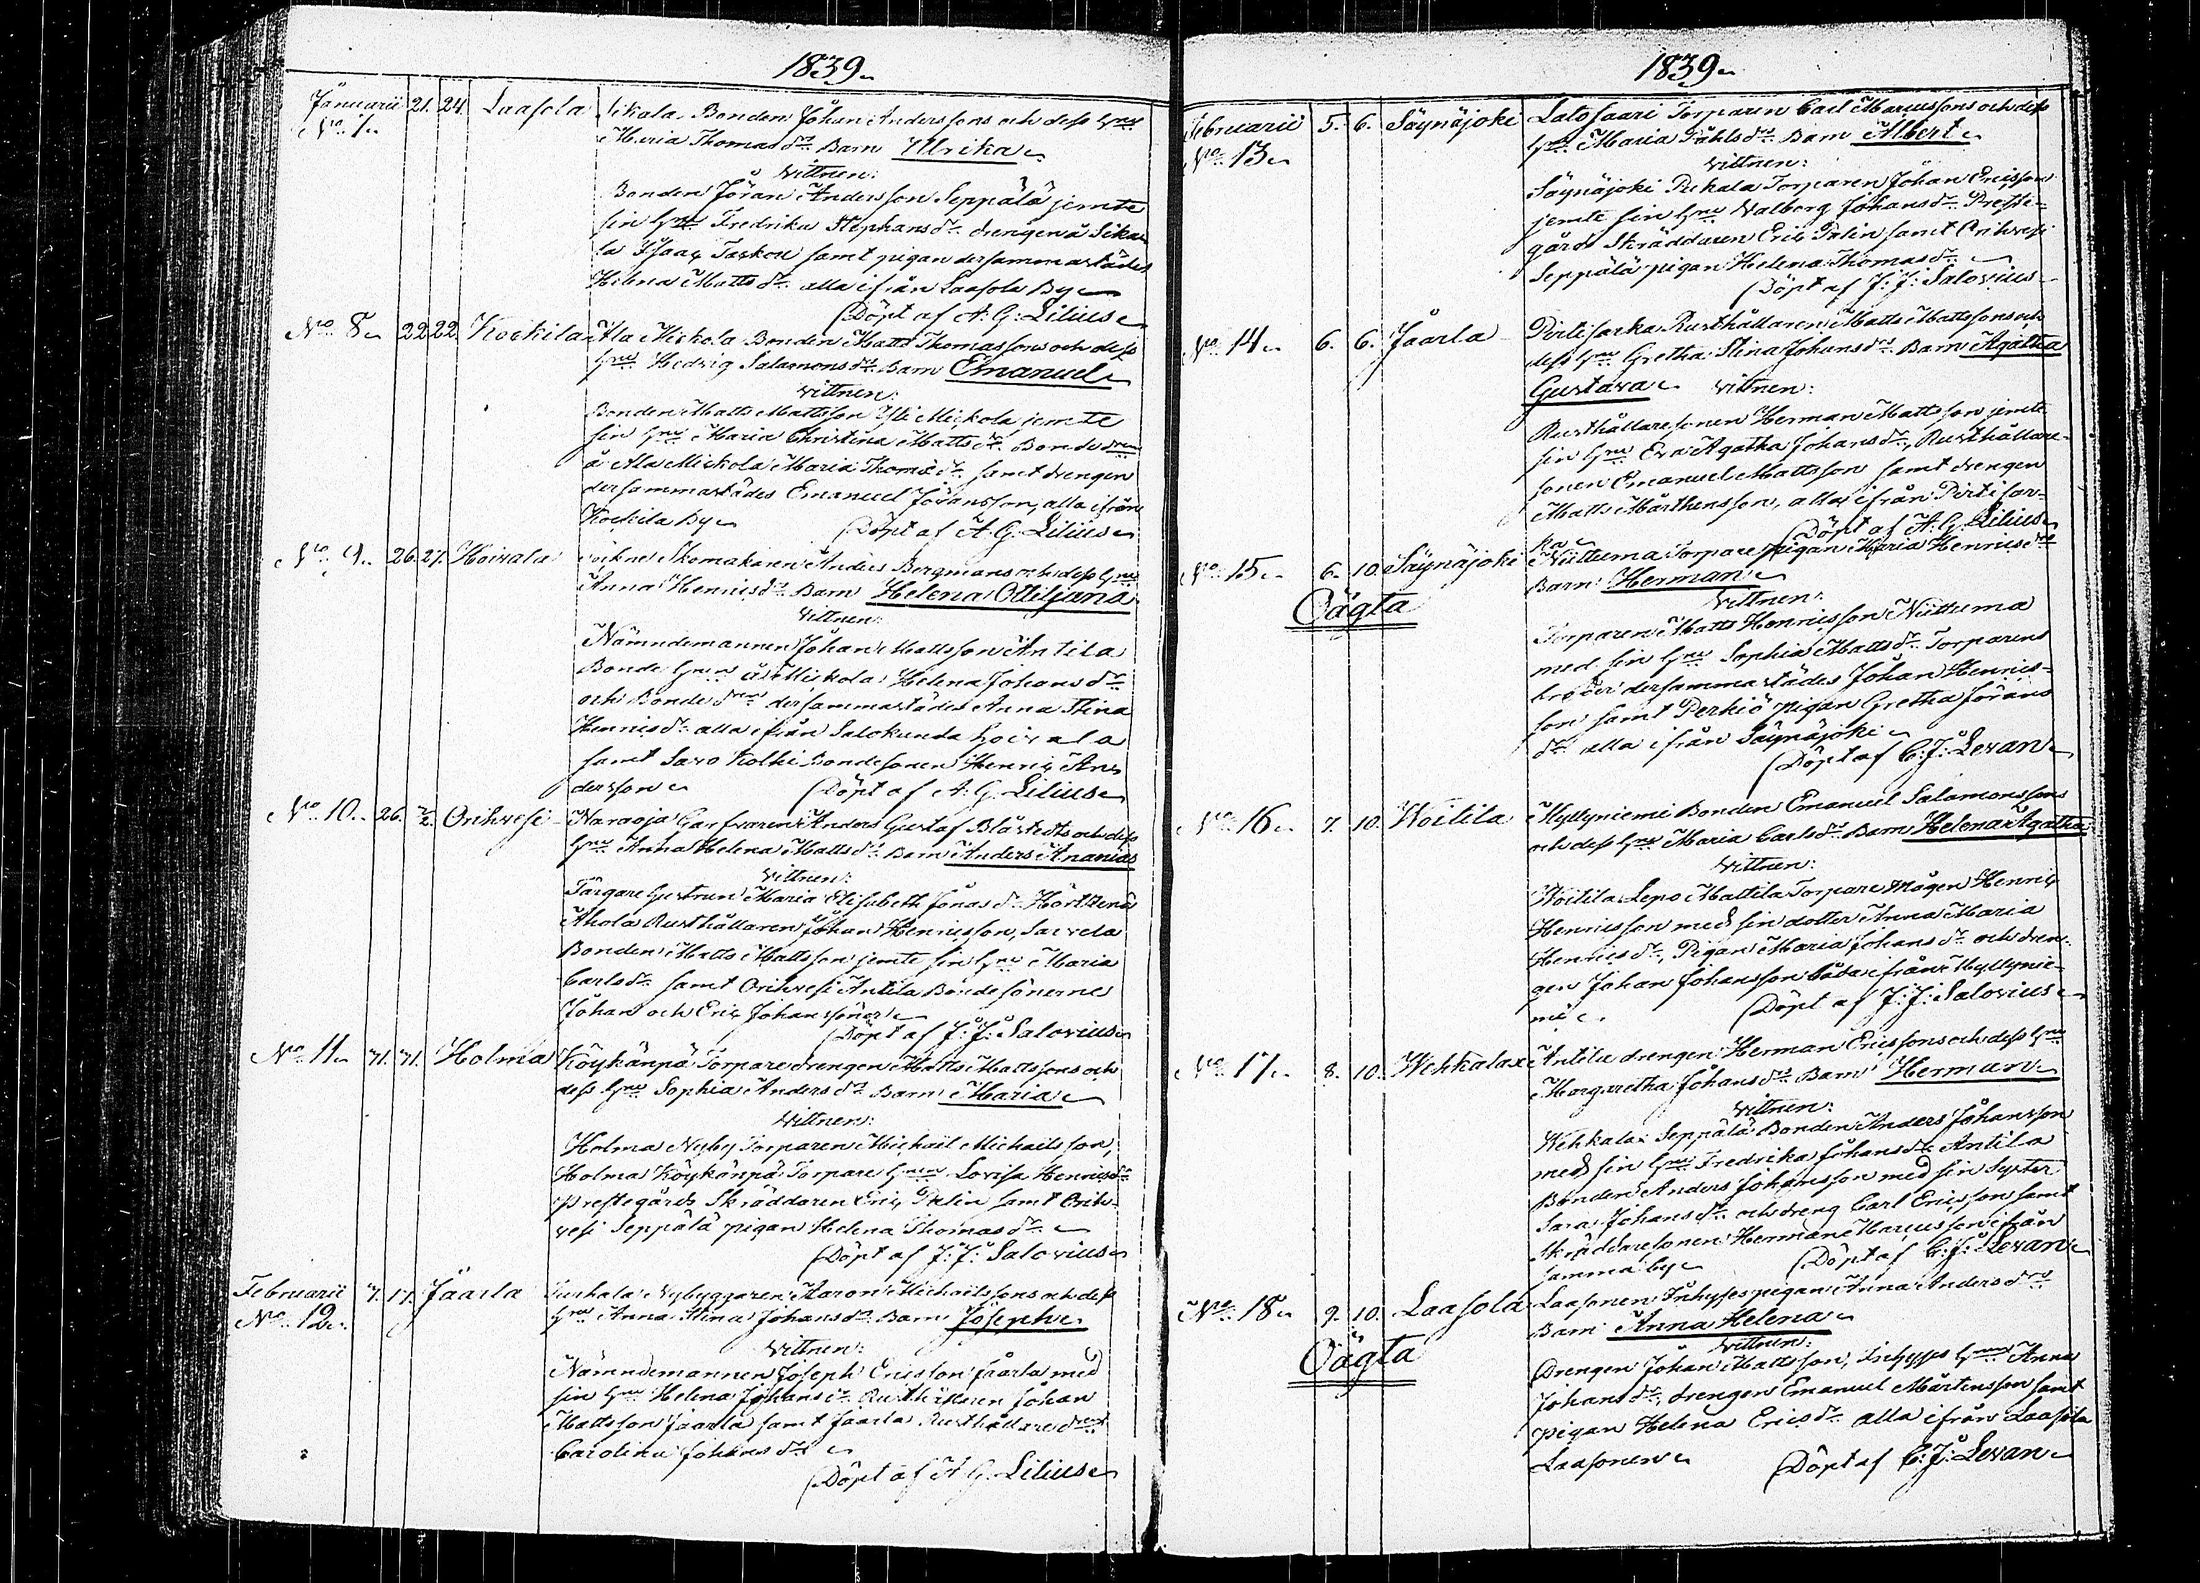 1839
Januarii 21. 24. Laasola Sikala Bonden Johan Anderssons och dess Hru
No 7 Maria Thomasdr Barn Ulrika
Vittnen:
Bonden Jöran Andersson Seppälä jemte
sin Hru Fredrika Stephansdr drengen å Sika-
la Isaac Taskou samt pigan dersammastädes
Helena Mattsdr alla ifrån Laasola By
Döpt af A: G: Lilius
No 8 22. 22. Kockila Ala Mickola Bonden Matts Thomassons och dess
Hru Hedvig Salamonsdr Barn Emanuel
Vittnen:
Bonden Matts Mattsson Yli Mickola jemte
sin Hru Maria Christina Mattsdr Bondedren
å Ala Mickola Maria Thomædr samt drengen
dersammastädes Emanuel Jöransson, alla ifrån
Kockila By Döpt af A: G: Lilius
No 9 26. 27. Hoivala Sockne Skomakaren Anders Bergmans och dess Hru
Anna Henricsdr Barn Helena Ottiljana
Vittnen:
Nämndemannen Johan Mattsson Antila
Bonde Hrun å Mickola Helena Johansdr
och Bonde dren dersammastädes Anna Stina
Henricsdr alla ifrån Salokunda Hoivala
samt Savo Kolhi Bondesonen Henric An-
dersson Döpt af A: G: Lilius
No 10 26. 2/2. Orihvesi Naraoja Garfvaren Anders Gustaf Blåstedts och dess
Hru Anna Helena Mattsdr Barn Anders Ananias
Vittnen:
Färgare Gestrun Maria Elisabeth Jonasdr
Ahola Rusthållaren Johan Henricsson, Sarvela
Bonden Matts Mattsson jemte sin Hru Maria
Carlsdr samt Orihvesi Antila Bondesönerne
Johan och Eric Johanssöner
Döpt af J: J: Salovius
No 11 31. 31. Holma Köykänpä Torpare drengen Matts Mattssons och
dess Hru Sophia Andersdr Barn Maria
Vittnen:
Holma Nyby Torparen Michaël Michaelsson,
Holma Köykänpä Torpare Hrun Lovisa Henricsdr
Prestegårds Skräddaren Eric Palin samt Orih-
vesi Seppälä pigan Helena Thomasdr
Döpt af J: J: Salovius
Februarii 7. 17. Jäärla Nybyggaren Aaron Michaëlssons och dess
No 12 Hru Anna Stina Johansdr Barn Joseph
Vittnen:
Nämndemannen Joseph Ericsson Jäärla med
sin Hru Helena Johansdr Rusthållaren Johan
Mattsson Jaarla samt Jäärla Rusthållaredren
Carolina Johansdr
Döpt af A: G: Lilius
1839
Februarii 5. 6. Säynäjoki Latosaari Torparen Carl Marcussons och dess
No 13 Hru Maria Påhlsdr Barn Albert
Vittnen:
Säynäjoki Pukala Torparen Johan Ericsson
jemte sin Hru Valborg Johansdr Preste-
gårds Skräddaren Eric Palin samt Orihvesi
Seppälä pigan Helena Thomasdr
Döpt af J: J: Salovius
No 14 6. 6. Jäärla Pirtisarka Rusthållaren Matts Mattssons och
dess Hru Gretha Stina Johansdr Barn Agatha
Gustava Vittnen:
Rusthållaresonen Herman Mattsson jemte
sin Hru Eva Agatha Johansdr, Rusthållare-
sonen Emanuel Mattsson samt drengen
Matts Mårthensson, alla ifrån Pirtisar-
ka Döpt af A: G: Lilius
No 15 6. 10. Säynäjoki Niittuma Torpare pigan Maria Henricsdrs
Oägta Barn Herman
Vittnen:
Torparen Matts Henricsson Niittuma
med sin Hru Sophia Mattsdr Torparens
broder dersammastädes Johan Henrics-
son samt Perkiö pigan Gretha Jörans
dr alla ifrån Säynäjoki
Döpt af C: J: Levan
No 16 7. 10. Woitila Myllyniemi Bonden Emanuel Salamonssons
och dess Hru Maria Carlsdr Barn Helena Agatha
Vittnen:
Woitila Lepo Mattila Torpare mågen Henric
Henricsson med sin dotter Anna Maria
Henricsdr, Pigan Maria Johansdr och dren-
gen Johan Johansson båda ifrån Myllynie-
mi Döpt af J: J: Salovius
No 17 8. 10. Wehkalax Antila drengen Herman Ericssons och dess Hru
Margaretha Johansdr Barn Herman
Vittnen:
Wehkalax Seppälä Bonden Anders Johansson
med sin Hru Fredrika Johansdr Antila
Bonden Anders Johansson med sin Syster
Sara Johansdr och dreng Carl Ericsson samt
Skräddaresonen Herman Marcusson ifrån
samma by Döpt af C: J: Levan
No 18 9. 10. Laasola Laasonen Inhysespigan Anna Andersdrs
Oägta Barn Anna Helena
Vittnen:
Drengen Johan Mattsson, Inhyses Hrun Anna
Johansdr, drengen Emanuel Mårtensson samt
pigan Helena Ericsdr alla ifrån Laasola
Laasonen Döpt af C: J: Levan